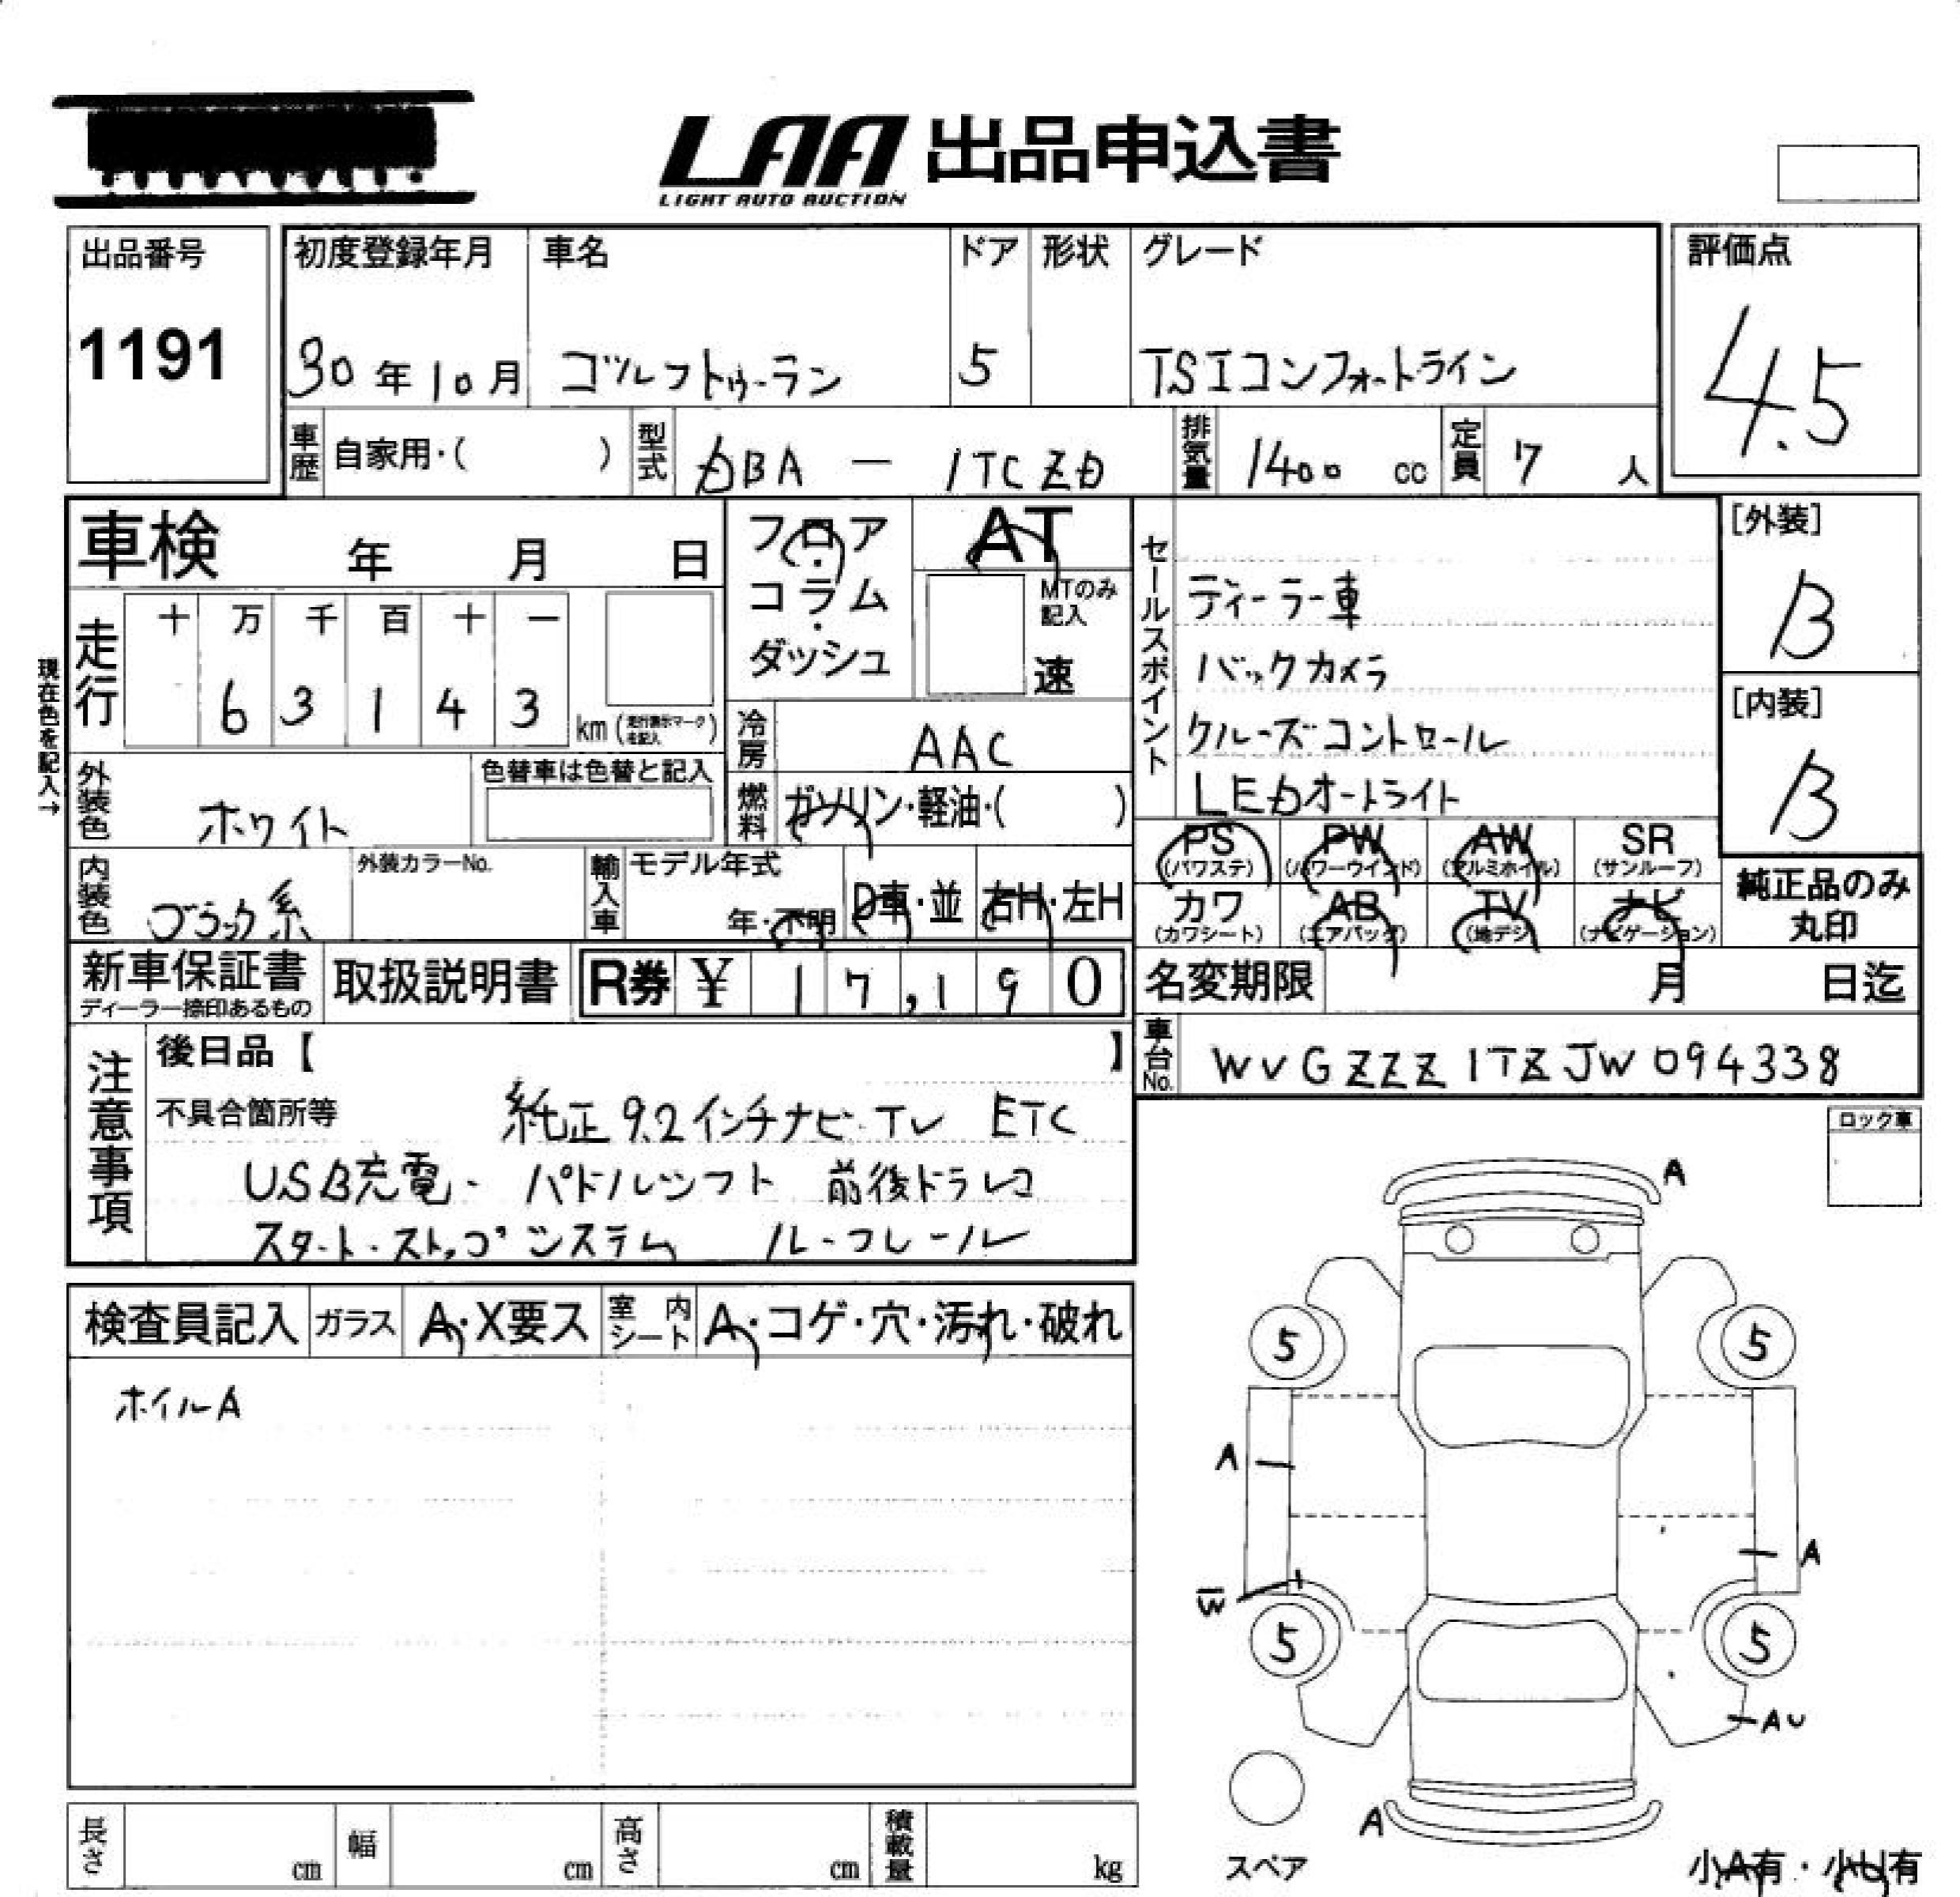 LAA 出品申込書
LIGHT AUTO AUCTION
出品番号
1191
初度登録年月
30年10月
車名
ゴルフトゥーラン
ドア
5
形状
グレード
TSIコンフォートライン
評価点
4.5
車歴
自家用・( )
型式
DBA — 1TCZD
排気量
1400 cc
定員
7 人
車検 年 月 日
フロア・コラム・ダッシュ
AT
MTのみ記入
速
セールスポイント
ディーラー車
バックカメラ
クルーズコントロール
LEDオートライト
[外装]
B
[内装]
B
現在色を記入→
走行
十 万 千 百 十 一
6 3 1 4 3 km
冷房
AAC
燃料
ガソリン・軽油・( )
外装色
ホワイト
色替車は色替と記入
内装色
ブラック系
外装カラーNo.
輸入車
モデル年式
年・不明
D車・並
右H・左H
PS (パワステ)
PW (パワーウインド)
AW (アルミホイル)
SR (サンルーフ)
カワ (カワシート)
AB (エアバッグ)
TV (地デジ)
ナビ (ナビゲーション)
純正品のみ丸印
新車保証書
ディーラー捺印あるもの
取扱説明書
R券 ¥ 17,190
名変期限 月 日迄
車台No.
WVGZZZ1TZJW094338
注意事項
後日品【 】
不具合箇所等
純正9.2インチナビ・TV ETC
USB充電・ パドルシフト 前後ドラレコ
スタート・ストップシステム ルーフレール
ロック車
検査員記入
ガラス
A・X要ス
室内シート
A・コゲ・穴・汚れ・破れ
ホイルA
A
5
5
A
A
W
5
5
AU
A
スペア
小A有・小U有
長さ cm
幅 cm
高さ cm
積載量 kg